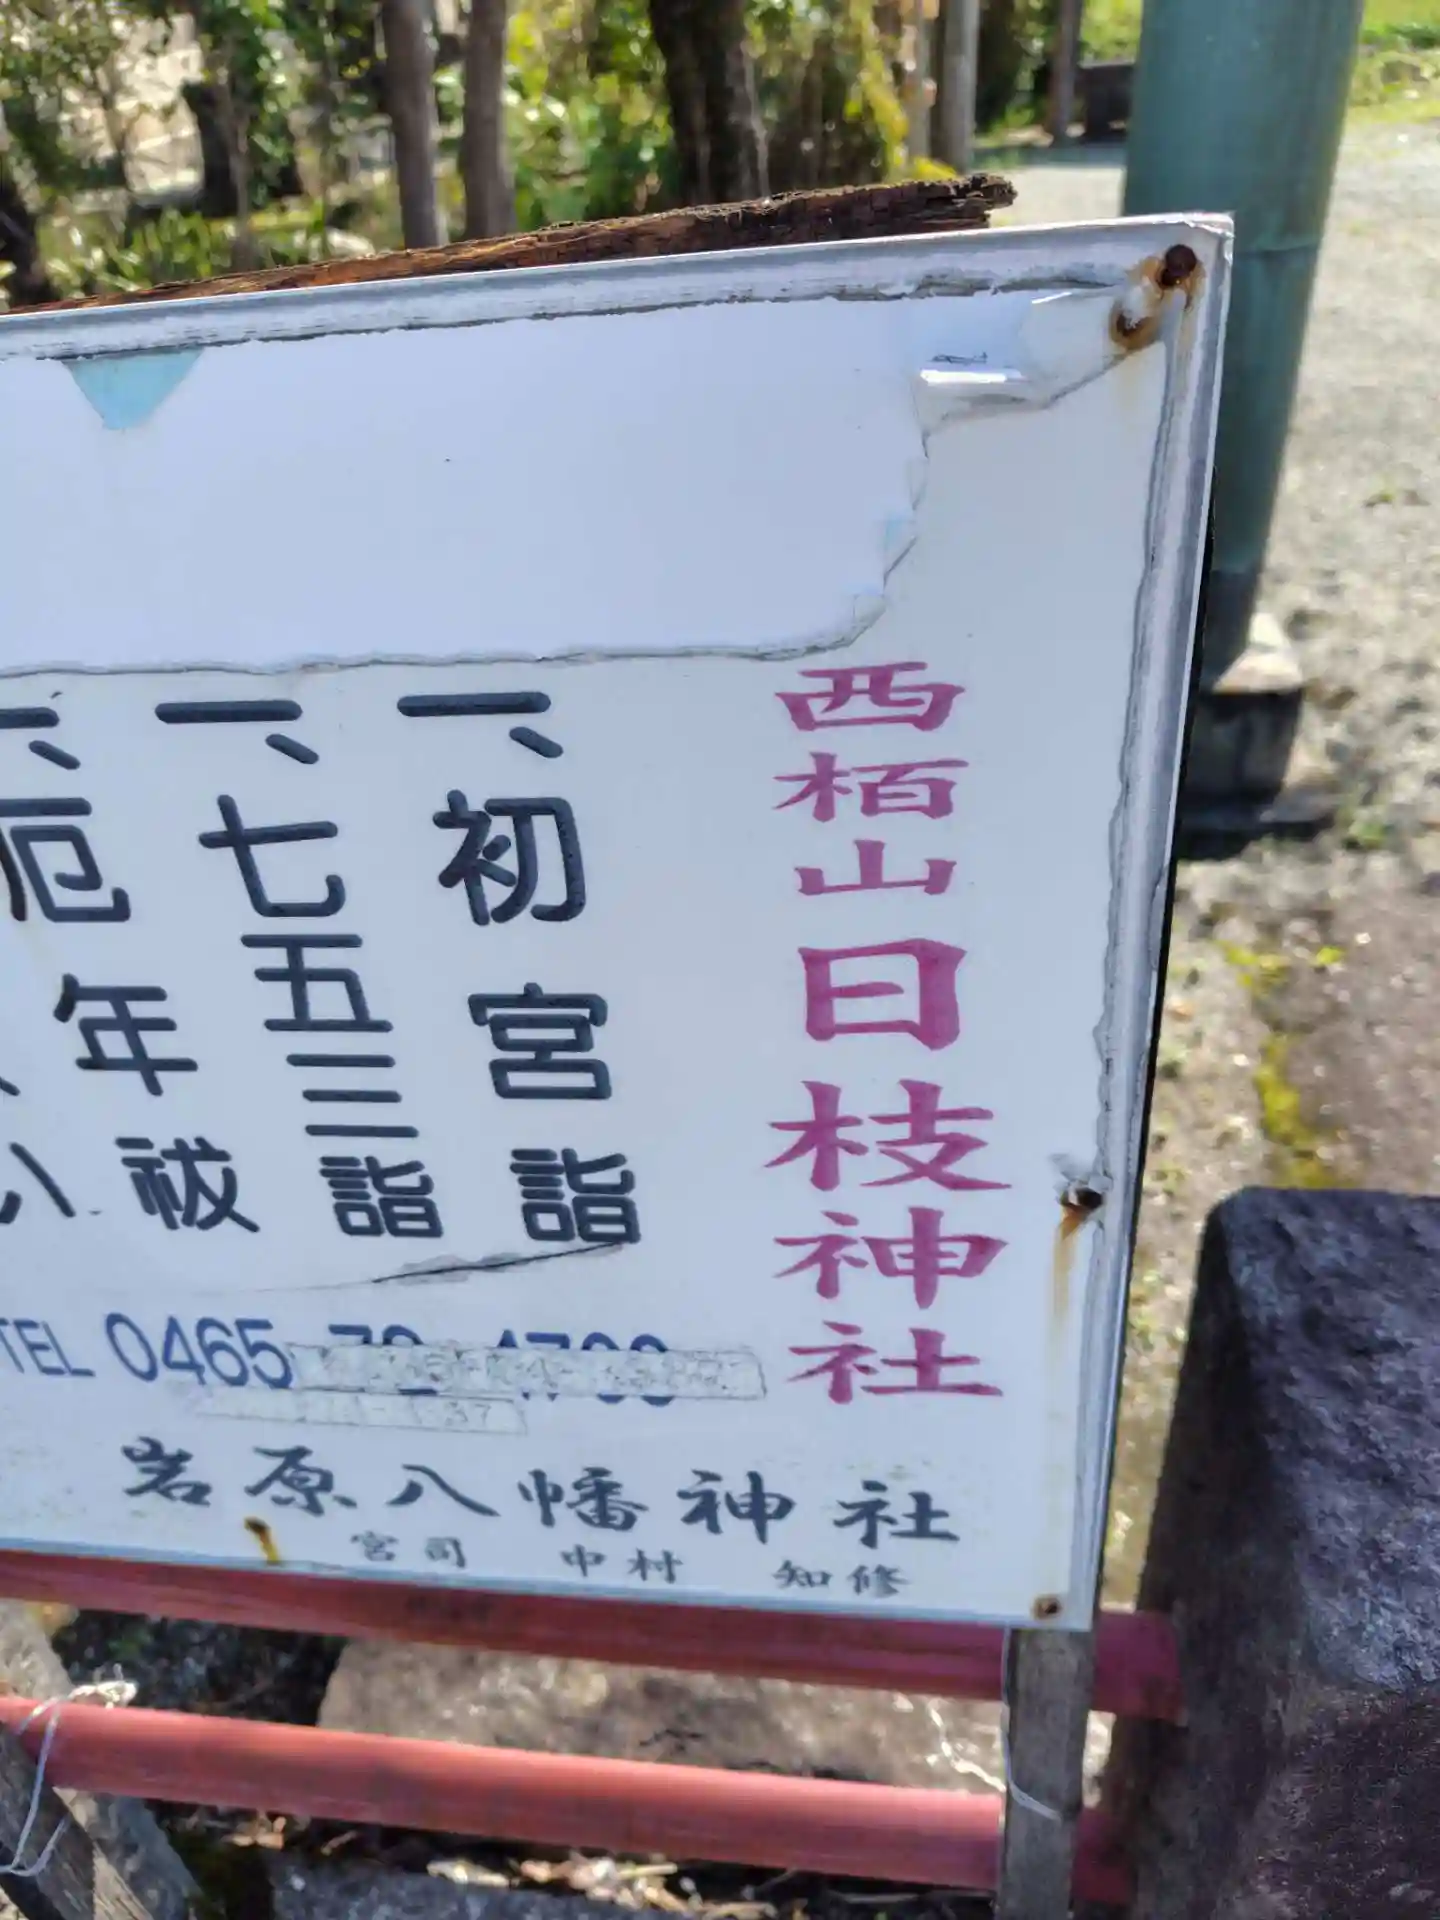 西栢山日枝神社
一、初宮詣
一、七五三詣
一、厄年祓
TEL 0465
岩原八幡神社
宮司 中村 知修